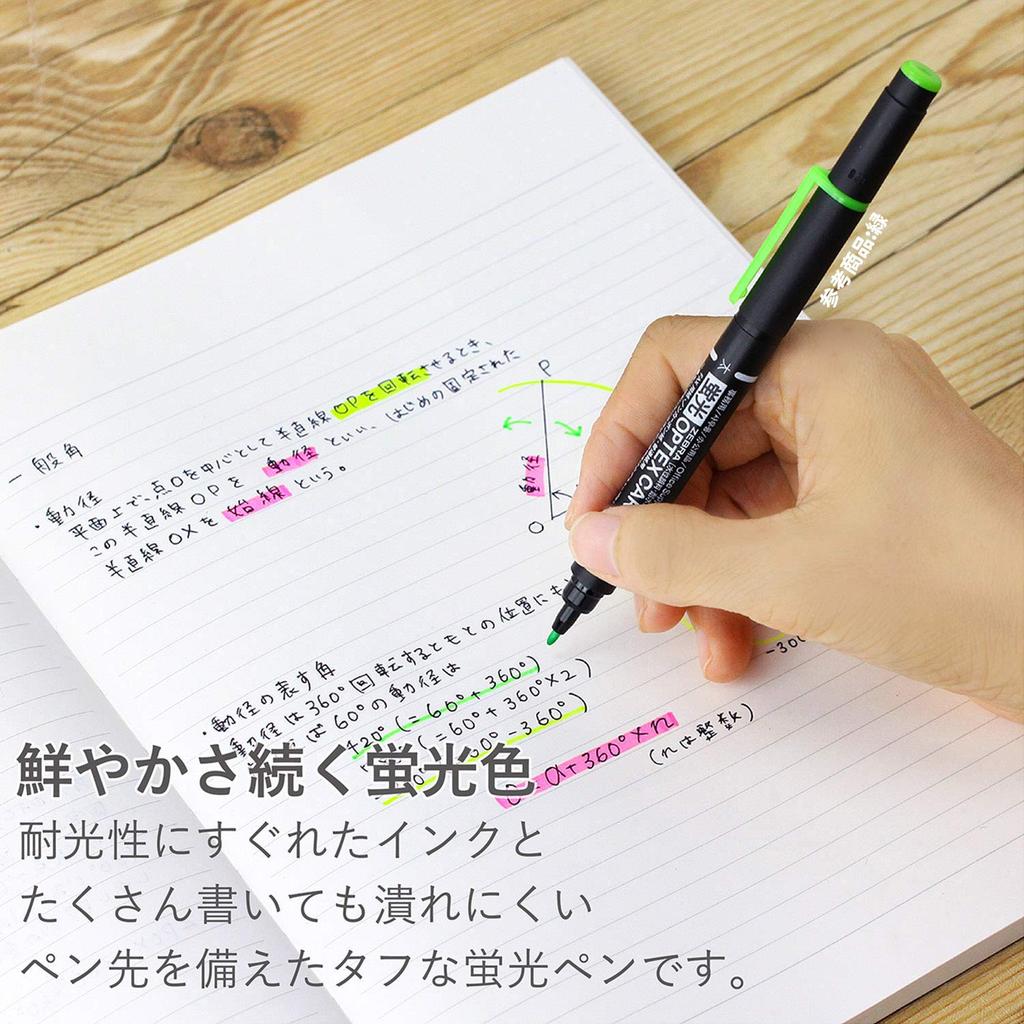 参考商品:緑
太
蛍光 OPTEX CAR
ZEBRA
一般角
・動径
平面上で、点Oを中心として半直線OPを回転させるとき、
この半直線OPを 動径 といい、はじめの固定された
半直線OXを 始線 という。
P
動径
O
・動径の表す角
動径は360°回転するともとの位置にも
ば60°の動径は
420°(=60°+360°)
(=60°+360°×2)
0°-360°)
-300
=α+360°×n
(nは整数)
鮮やかさ続く蛍光色
耐光性にすぐれたインクと
たくさん書いても潰れにくい
ペン先を備えたタフな蛍光ペンです。